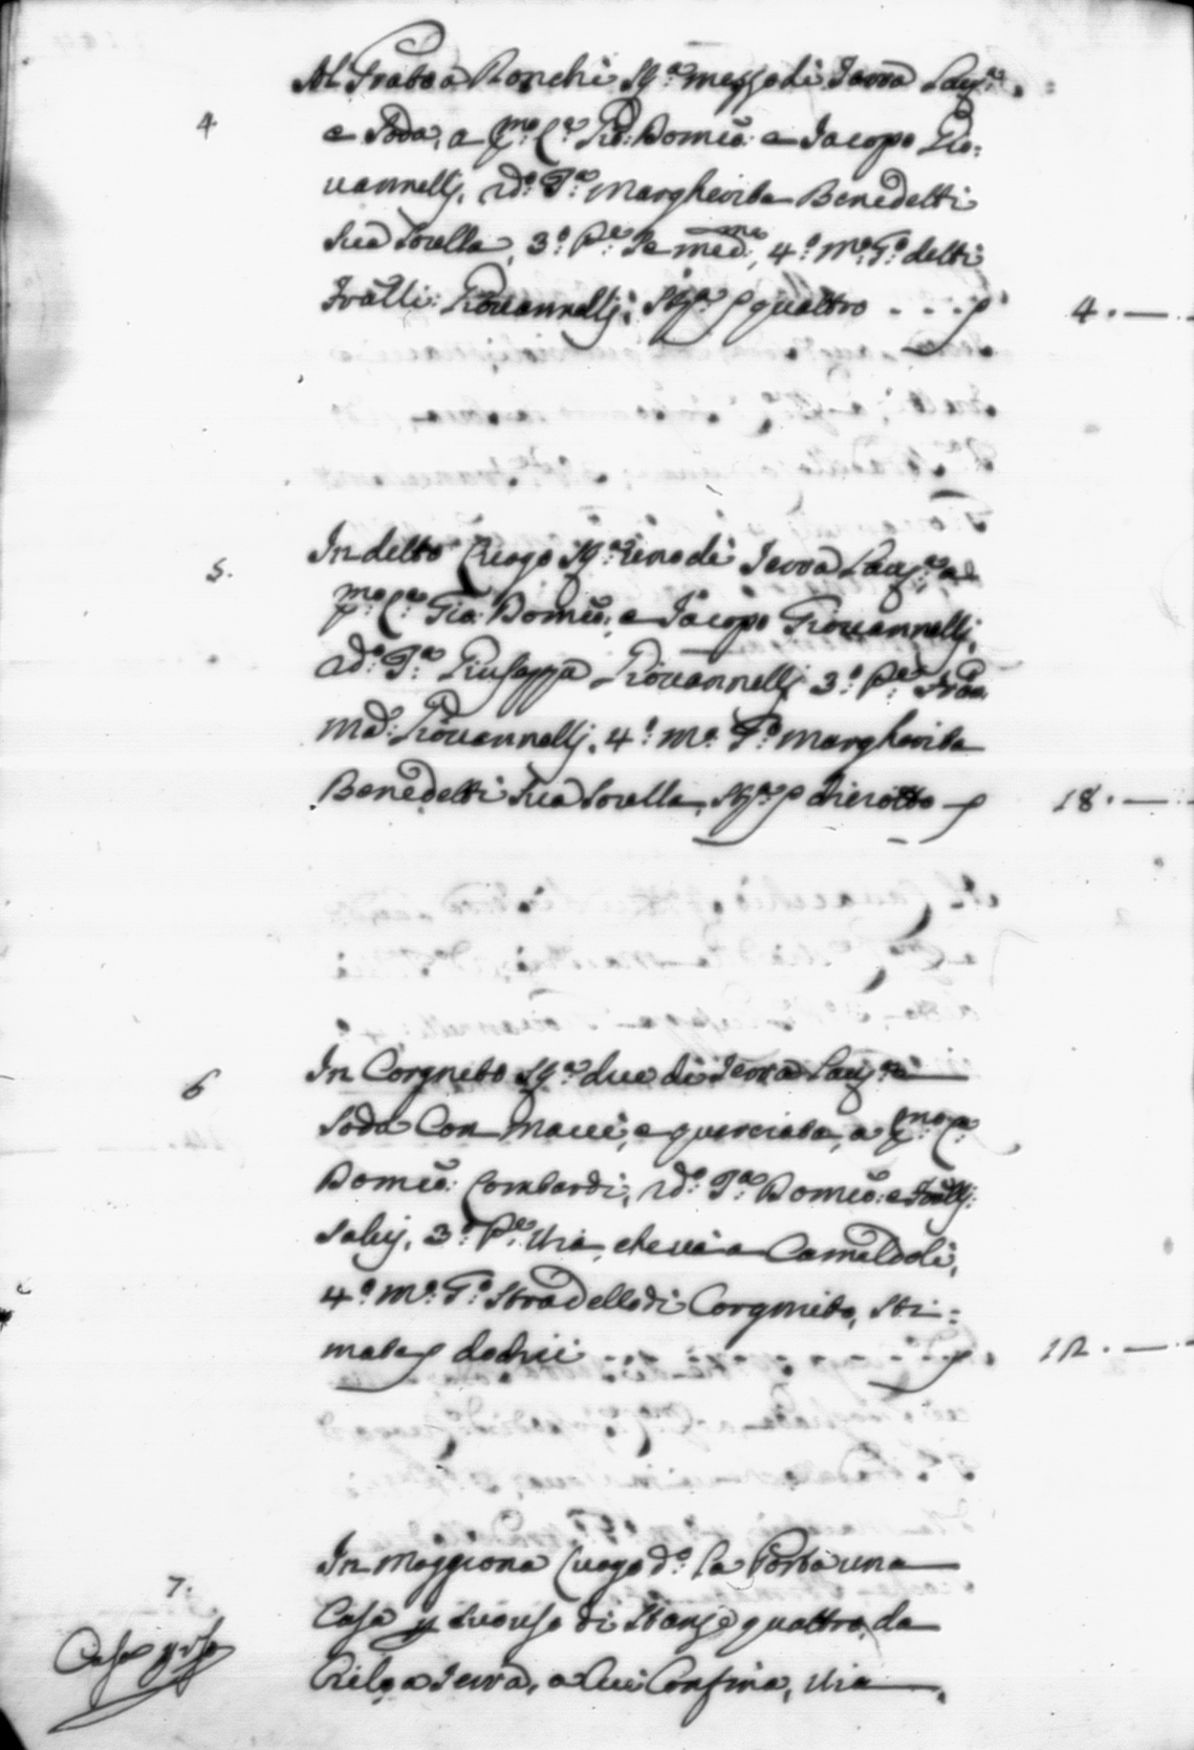 4
Al Fratto a Ronchi St.ª mezzo di Terra Lau.ª
e Soda, a p.mo C.e Gio: Dom.co e Jacopo Gio=
vannelli, 2d.º T.ª Margherita Benedetti
Sua Sorella, 3.º P.e Se med.mo, 4.º M.º T.º detti
Fratelli: Giovannelli, St.ª p quattro - - - - p 4. —
5.
In detto Luogo St.ª uno di Terra Lau.ª a
p.mo C.e Gio: Dom.co, e Jacopo Giovannelli,
2d.º T.ª Giuseppa Giovannelli 3.º P.e Fran.
Md.ª Giovannelli, 4.º M.º T.º Margherita
Benedetti Sua Sorella, St.ª p dieiotto — p 18. —
6
In Corgnito St.ª due di Terra Lau.ª e
Soda Con Macci, e querciata, a p.mo C.e
Dom.co: Lombardi, 2d.º T.ª Dom.co: e Fratelli:
Salvj, 3.º P.e Via, che và a Camaldoli,
4.º M.º T.º Stradello di Corgnito, Sti=
mata p dodici - - - - - - - - p 12. —
7.
Casa p uso
In Moggiona Luogo d.º La Porta una
Casa p Suo uso di Stanze quattro, da
Cielo a Terra, a Cui Confina, Via